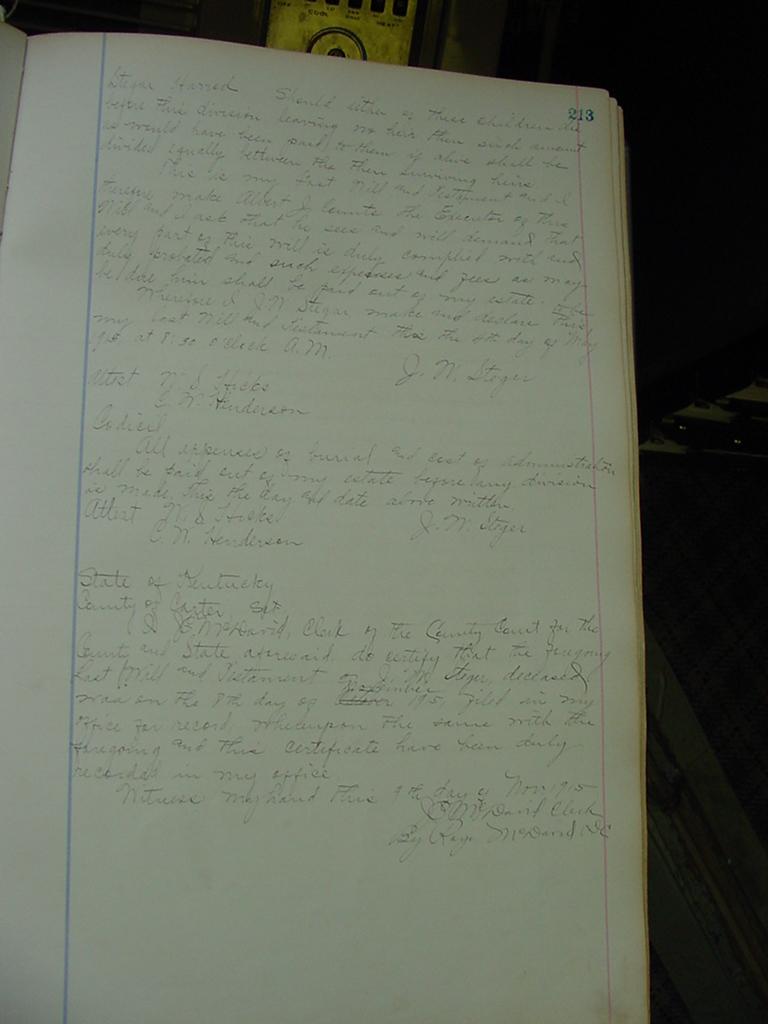 213
Stegar Harred Should either of these children die
before this division leaving no heir then such amount
as would have been paid to them if alive shall be
divided equally between the then surviving heirs
This is my last Will and Testament and I
therefore make Albert J. Counts the Executor of this
Will and I ask that he sees and will demand that
every part of this will is duly complied with and
duly probated and such expenses and fees as may
be due him shall be paid out of my estate.
Wherefore I J. W. Stegar make and declare this
my last Will and Testament this the 4th day of May
1915 at 8:30 o'clock A.M.
J. W. Steger
Attest N. S. Hicks
C. W. Henderson
Codicil
All expenses of burial and cost of administration
shall be paid out of my estate before any division
is made, this the day and date above written
Attest N. S. Hicks J. W. Steger
C. W. Henderson
State of Kentucky
County of Carter, Sct.
I McDavid, Clerk of the County Court for the
County and State aforesaid, do certify that the foregoing
Last Will and Testament of J. W. Steger, deceased
was on the 8th day of 1915, filed in my
office for record, whereupon the same with the
foregoing and this certificate have been duly
recorded in my office.
Witness my hand this 9th day of Nov. 1915
McDavid Clerk
By McDavid DC